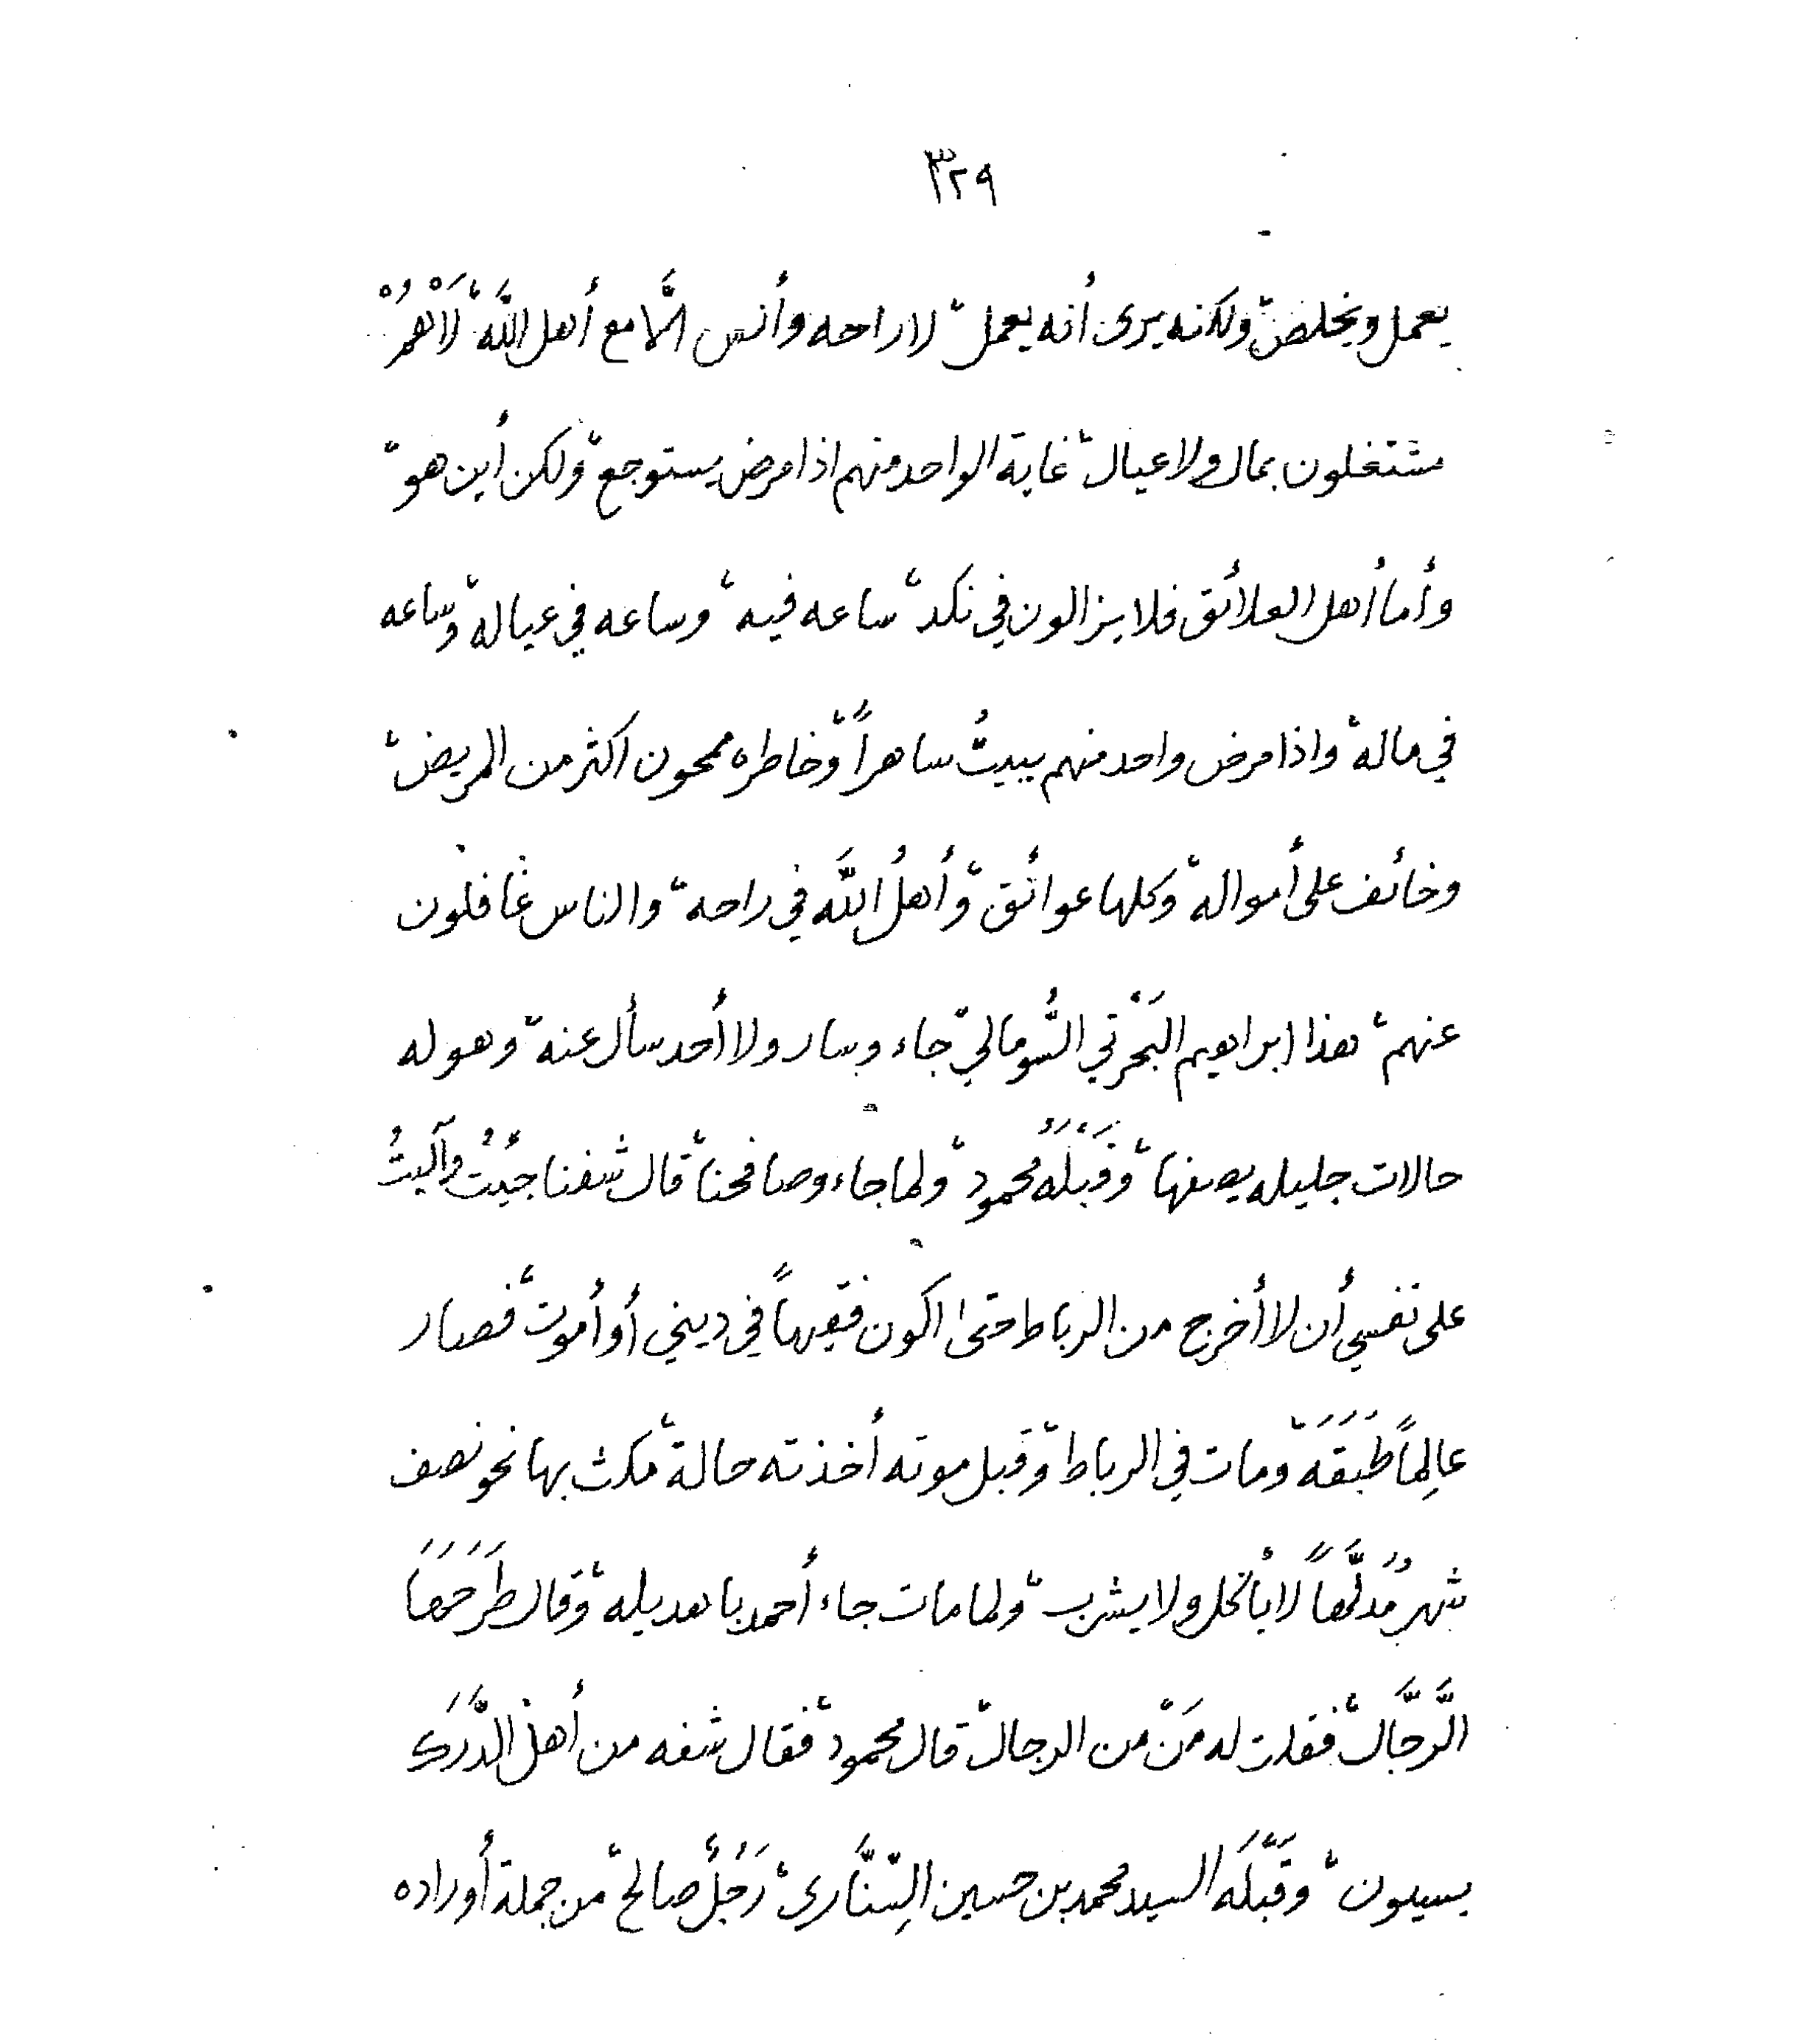 ٣٢٩
يعمل ويخلص، ولكنه يرى أنه يعمل، لا راحه وأنس الَّا مع أهل اللَّه، لَاهُمْ
مشتغلون بمال ولا عيال، غاية الواحد منهم اذا مرض يستوجع، ولكن أين هو،
وأما أهل العلائق فلا يزالون في نكد، ساعه فيه، وساعه في عياله، وساعه
في ماله، واذا مرض واحد منهم يبيتُ ساهراً، وخاطره ممحون اكثر من المريض،
وخائف على أمواله، وكلها عوائق، وأهلُ اللَّه في راحه، والناس غافلون
عنهم، هذا ابراهيم البَحْرتي السُّومالي، جاء وسار ولا أحد سأل عنه، وهو له
حالات جليله يصفها، وقَبْلَهُ محمود، ولما جاء وصافحنا، قال شفنا جيئتُ وآليتُ
على نفسي أن لا أخرج من الرباط حتى اكون فقيهاً في ديني أو أموت، فصار
عالِماً طَبَقَهَ، ومات في الرباط، وقبل موته أخذته حالة، مكث بها نحو نصف
شهر مُدَلَّهاً لا يأكل ولا يشرب، ولما مات جاء أحمد باهديله، وقال طَرَحَهَا
الرَّجَّال، فقلت له مَنْ من الرجال، قال محمود، فقال شفه من أهل الدَّرَك
بسيون، وقَبْلَه السيد محمد بن حسين السِّنَّاري، رَجُلٌ صالح، من جملة أوراده